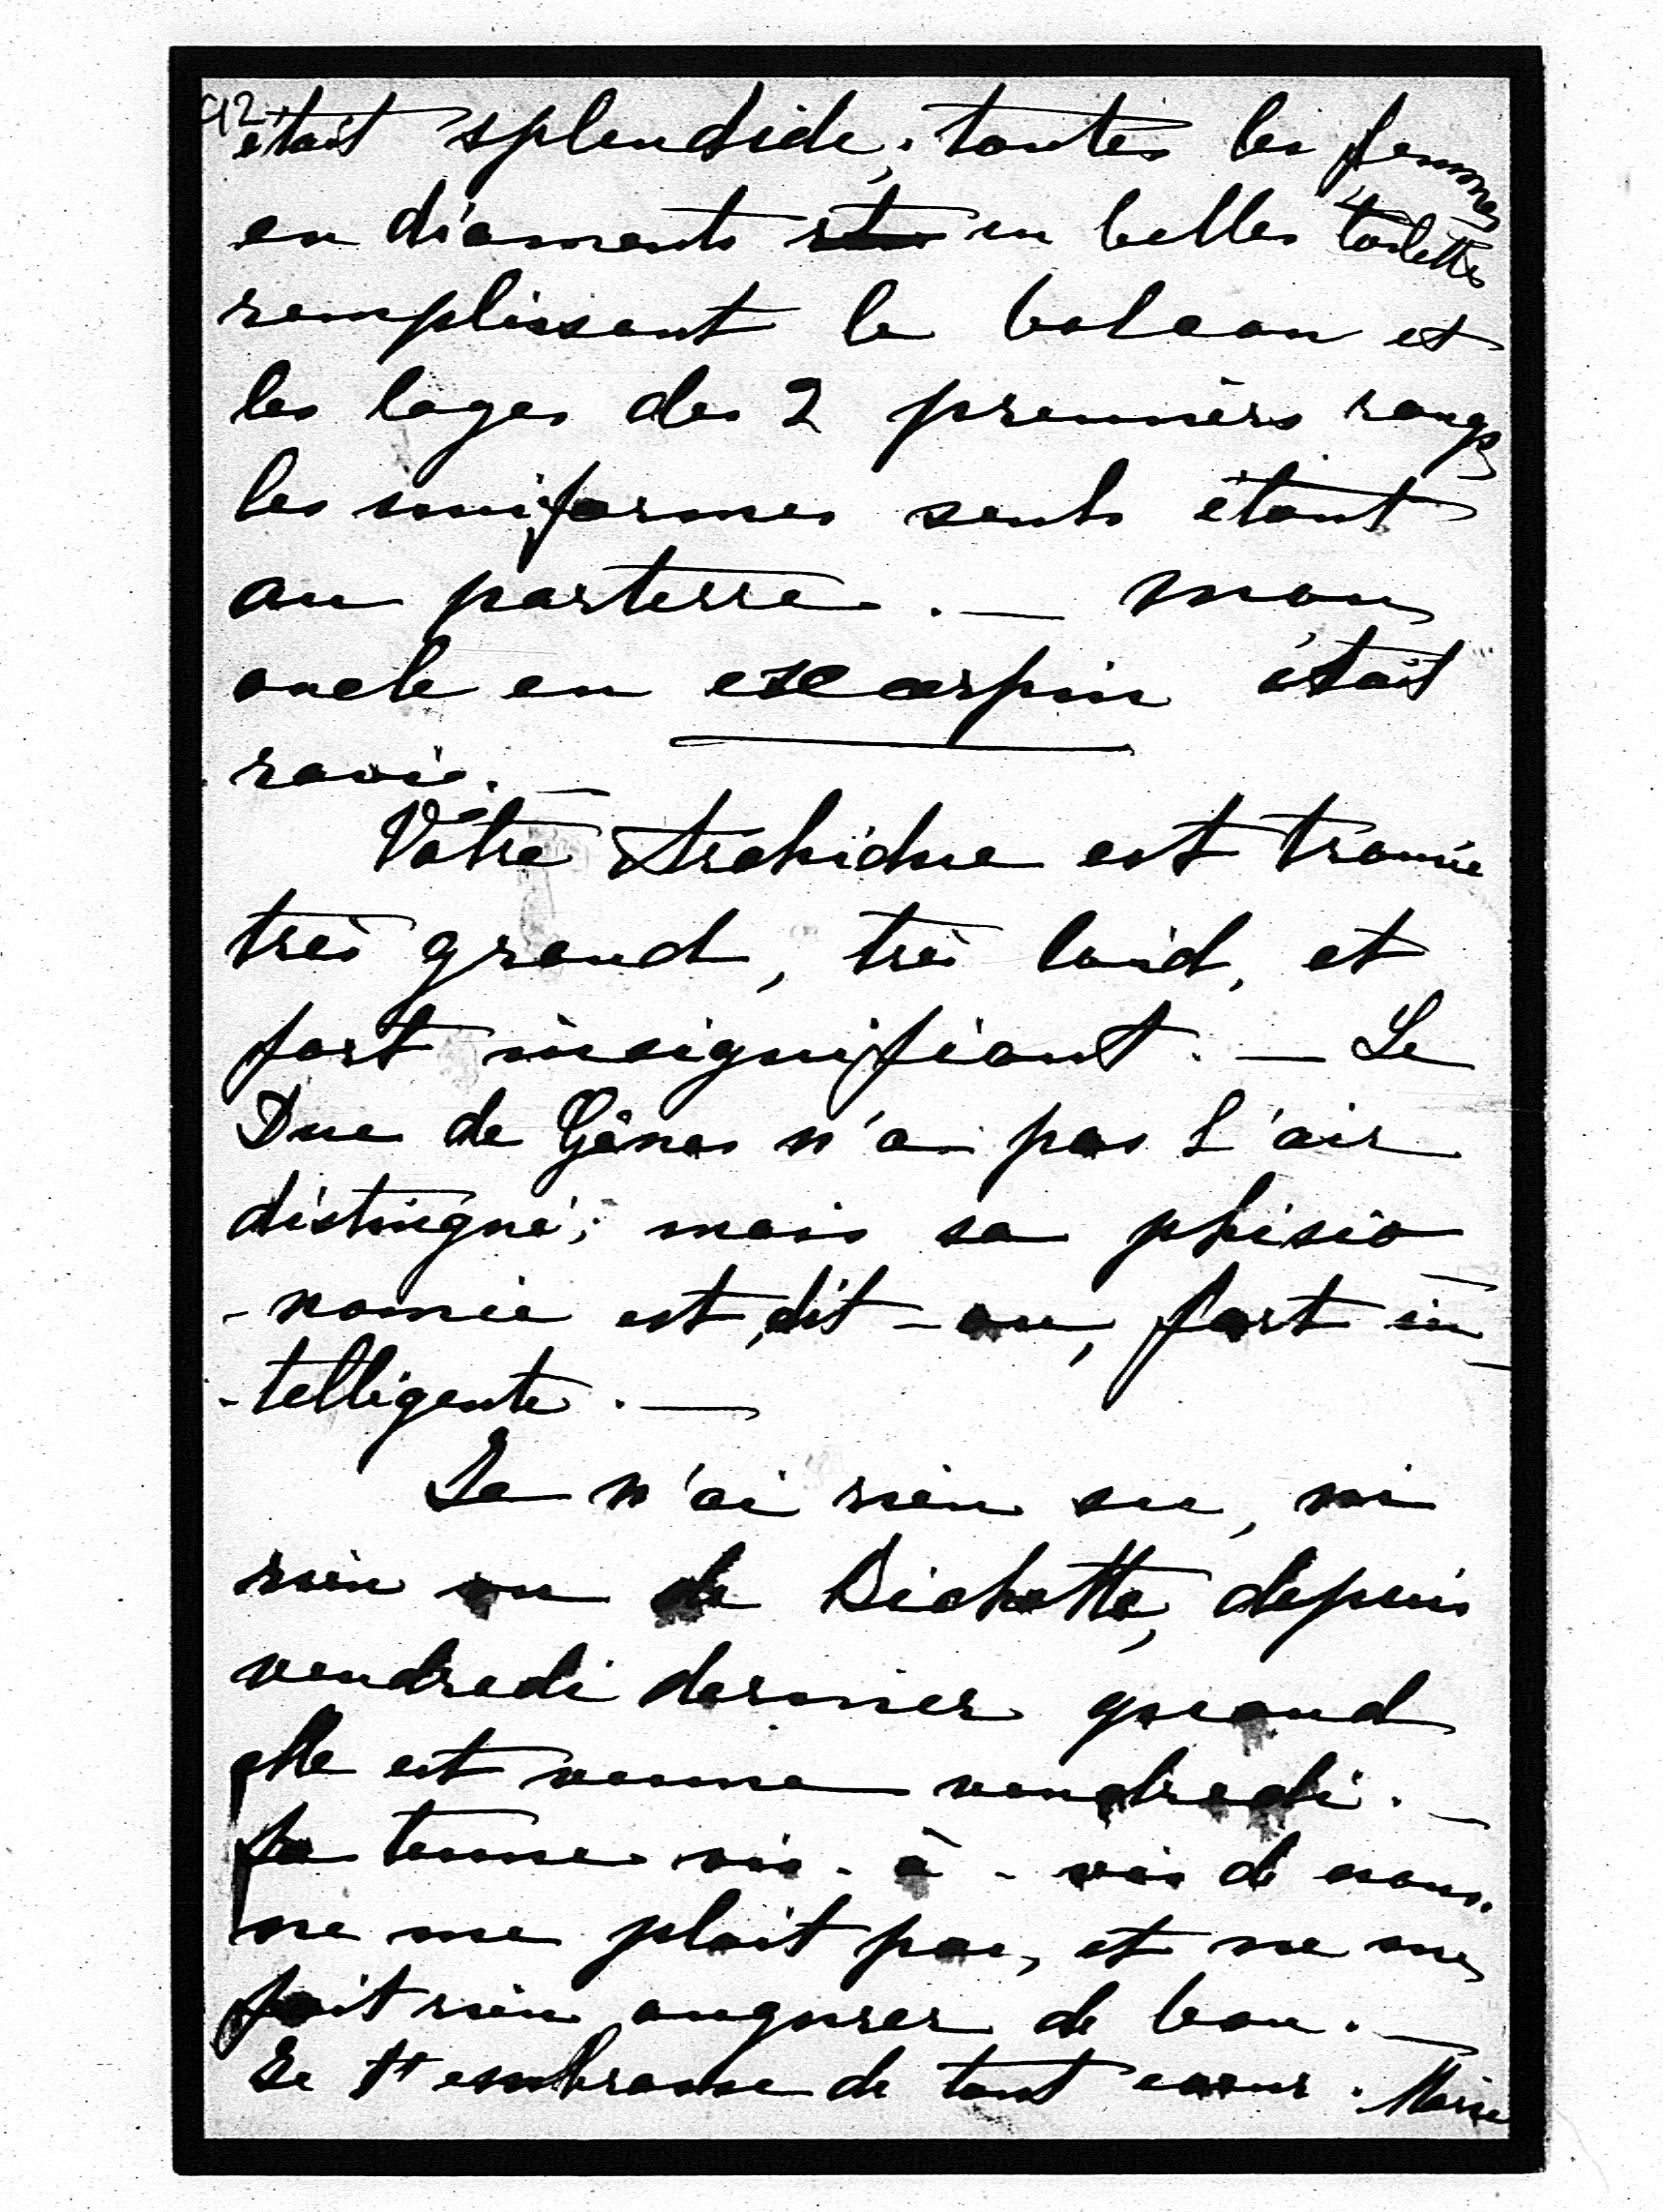 92
était splendide; toutes les femmes
en diamants en belles toilettes
remplissant le balcon et
les loges des 2 premièrs rangs
les uniformes seuls étant
au parterre. — mon
oncle en escarpin était
ravi. —
Vôtre Archiduc est trouvé
très grand, très laid, et
fort insignifiant. — Le
Duc de Gênes n'a pas l'air
distingué; mais sa phisio
-nomie est, dit-on, fort in-
-telligente. —
Je n'ai rien su, ni
rien vu de Bichette, depuis
vendredi dernier quand
elle est venue vendredi. —
Sa tenue vis-à-vis de nous
ne me plait pas, et ne me
fait rien augurer de bon. —
Je t'embrasse de tout cœur. Marie